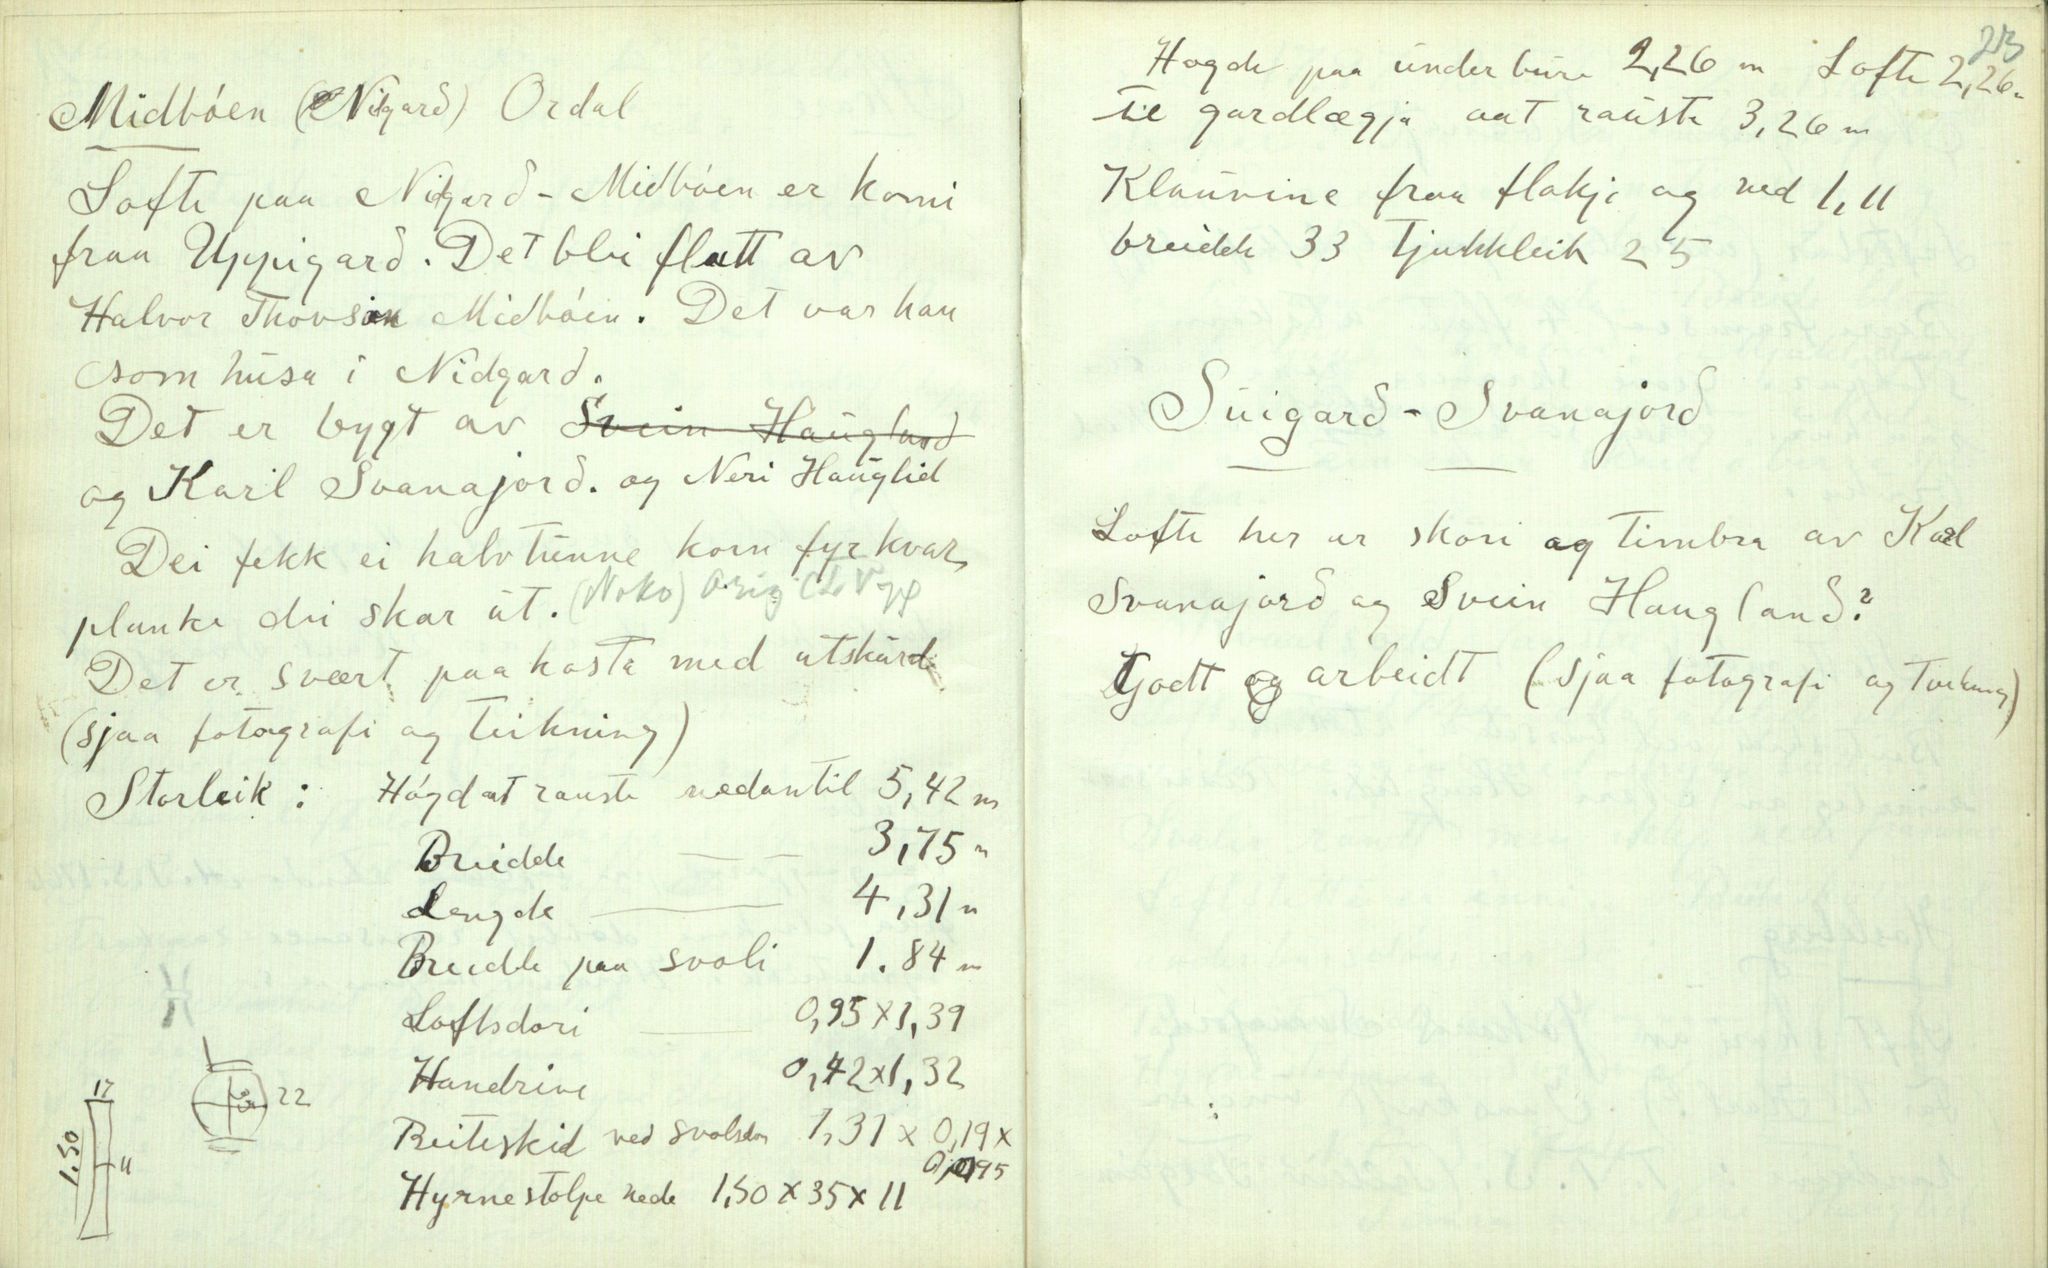 Midbøen (Nigard) Ordal
Lofte paa Nigard - Midbøen er komi
fraa Uppigard. Det blei flutt av
Halvor Thovson Midbøen. Det var han
som husa i Nidgard.
Det er bygt av Svein Haugland
og Karl Svanajord. og Neri Hauglid
Dei fekk ei halvtunne korn fyr kvar
planke dei skar ut. (Noko)
Det er svært paakosta med utskurd
(sjaa fotografi og teikning)
Storleik : Høgd at rauste nedantil 5,42 m
Breidde — — 3,75 m
Lengde — 4,31 m
Breidde paa svoli 1.84 m
Loftsdori — 0,95 x 1,39
Handrive 0,42 x 1,32
Beiteskid ved svalsdør 1,31 x 0,19 x
0,095
Hyrnestolpe nede 1,50 x 35 x 11
22
17
1.50
11
213
Høgde paa underbure 2,26 m Lofte 2,26 m
til gardlægja aat rauste 3,26 m
Klauvine fraa flakje og ned 1,11
breidde 33 Tjukkleik 25
Suigard - Svanajord
Lofte her er skori og timbra av Karl
Svanajord og Svein Haugland?
Godt arbeidt (sjaa fotografi og teikning)